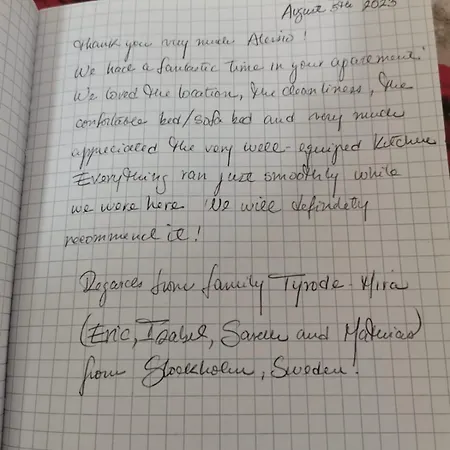 August 5th 2023
Thank you very much Alessio!
We have a fantastic time in your apartement.
We loved the location, the cleanliness, the
confortable bed/sofa bed and very much
appreciated the very well-equiped kitchen
Everything ran just smoothly while
we were here We will definitely
recommend it!
Regards from family Tyrode-
(Eric, Isabel, and Mathias)
from Stockholm, Sweden!